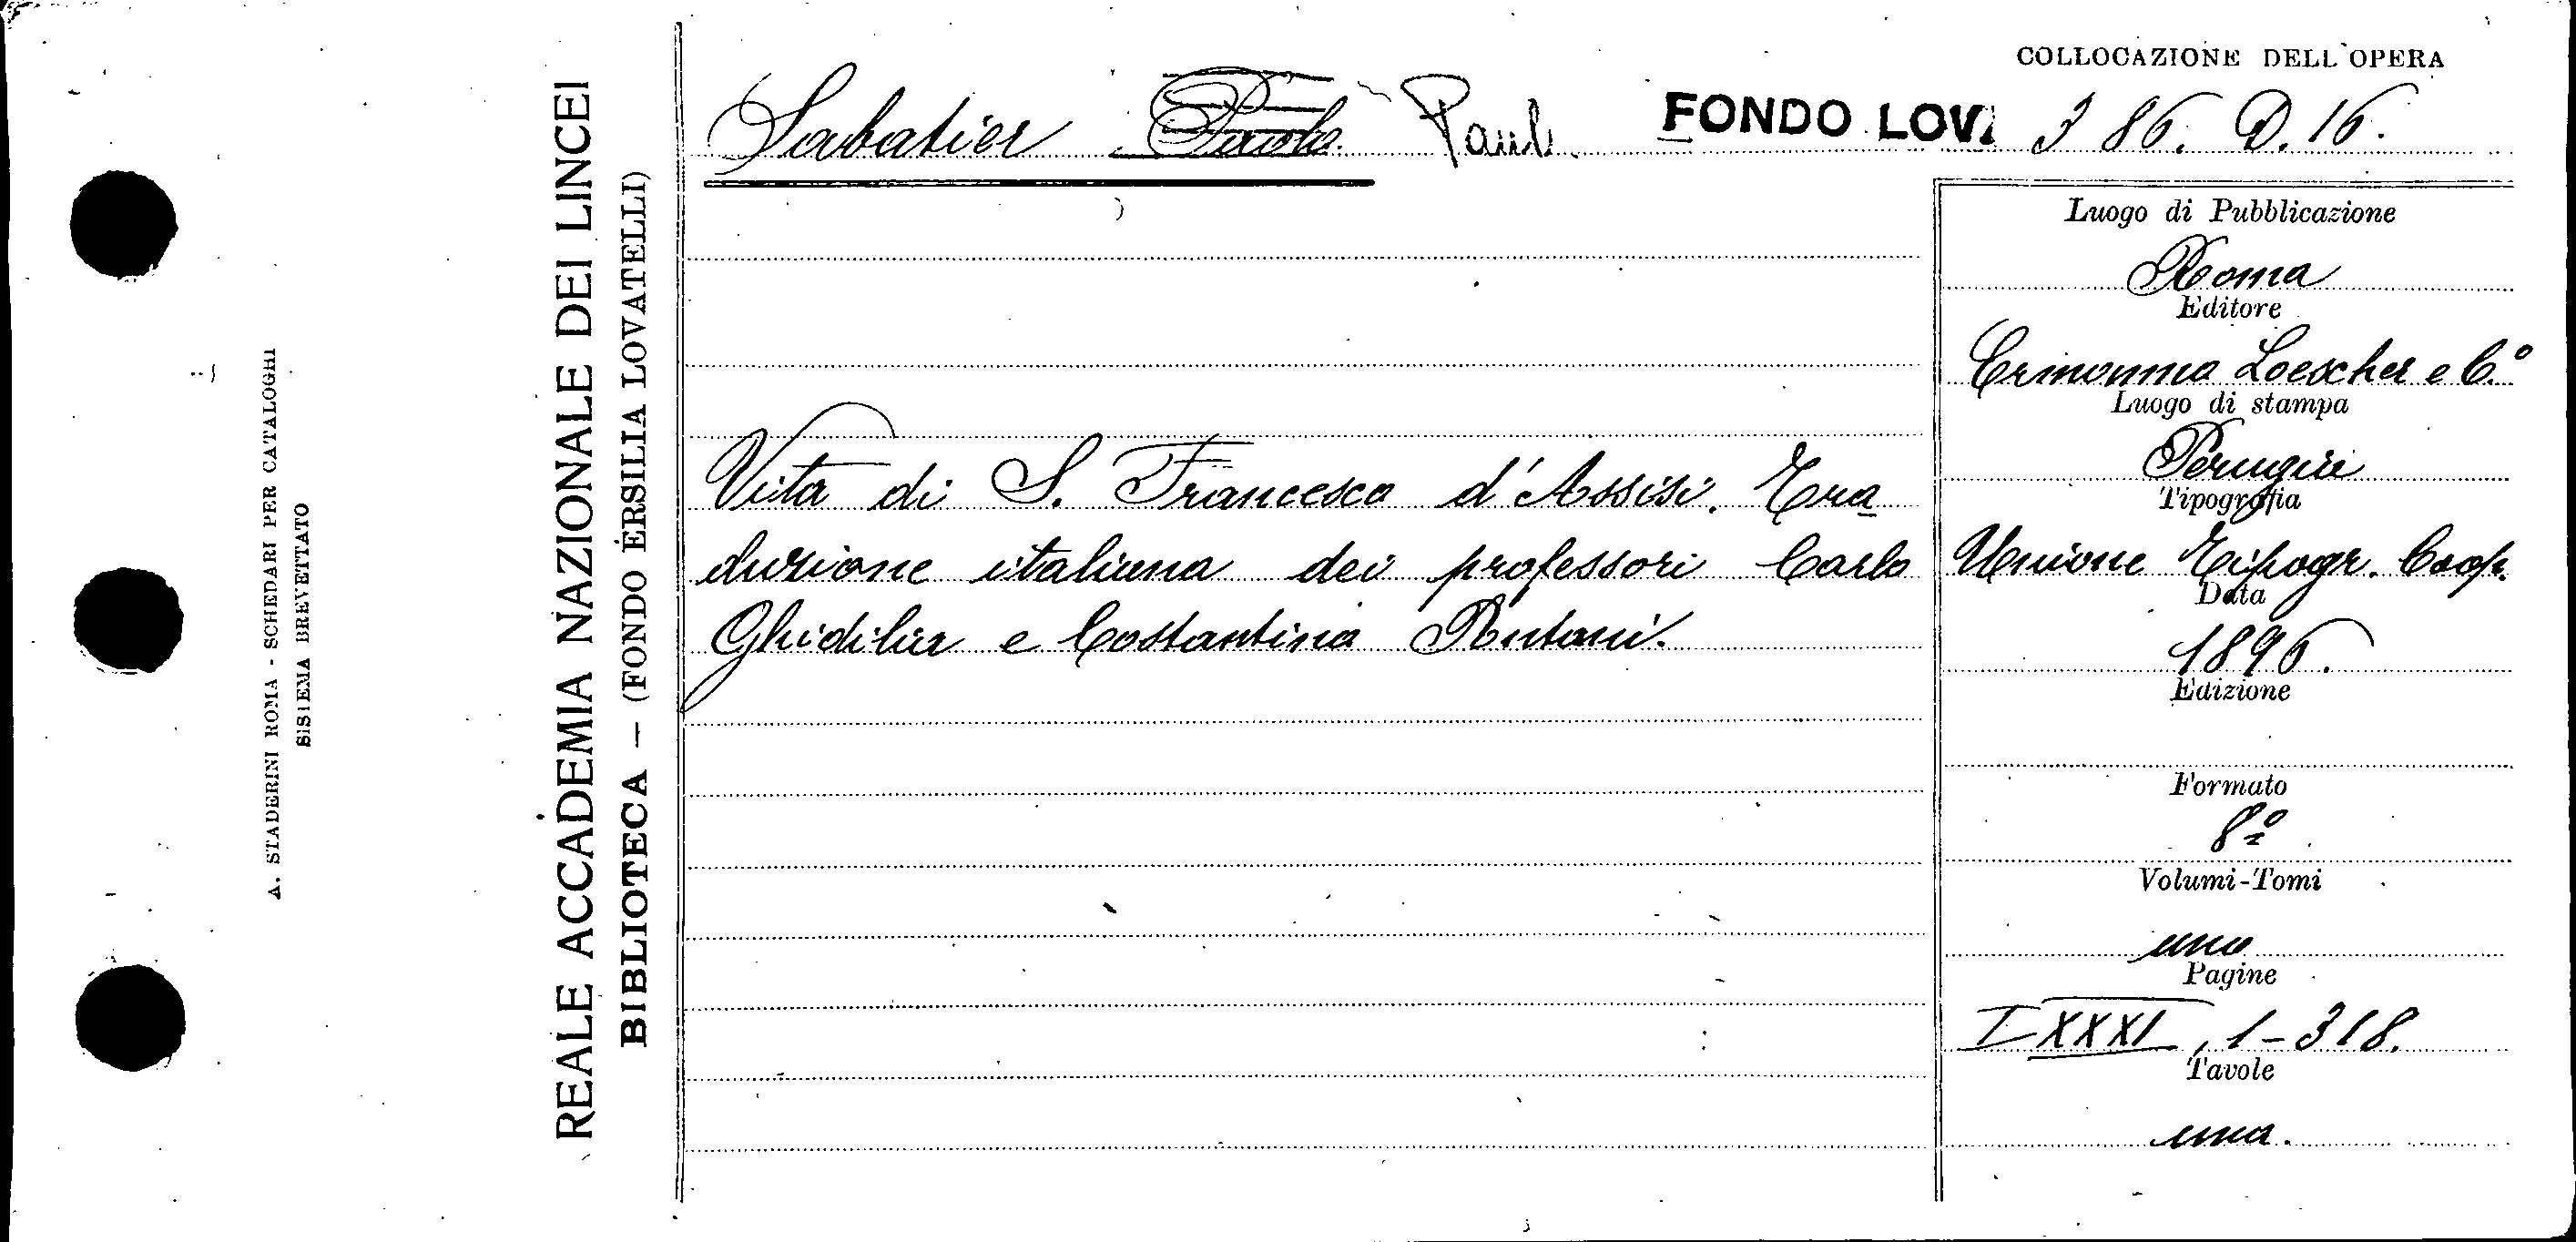 COLLOCAZIONE DELL'OPERA
Sabatier Paolo Paul. FONDO LOV. 3 86. D. 16.
Luogo di Pubblicazione
Roma
Editore
Ermanno Loescher e C.º
Luogo di stampa
Perugia
Tipografia
Unione Tipogr. Coop.
Data
1896.
Edizione
Formato
8º
Volumi-Tomi
uno
Pagine
LXXXI, 1-318.
Tavole
una.
Vita di S. Francesco d'Assisi. Tra
duzione italiana dei professori Carlo
Ghidilia e Costantino Pontani.
REALE ACCADEMIA NAZIONALE DEI LINCEI
BIBLIOTECA — (FONDO ERSILIA LOVATELLI)
A. STADERINI ROMA - SCHEDARI PER CATALOGHI
SISTEMA BREVETTATO